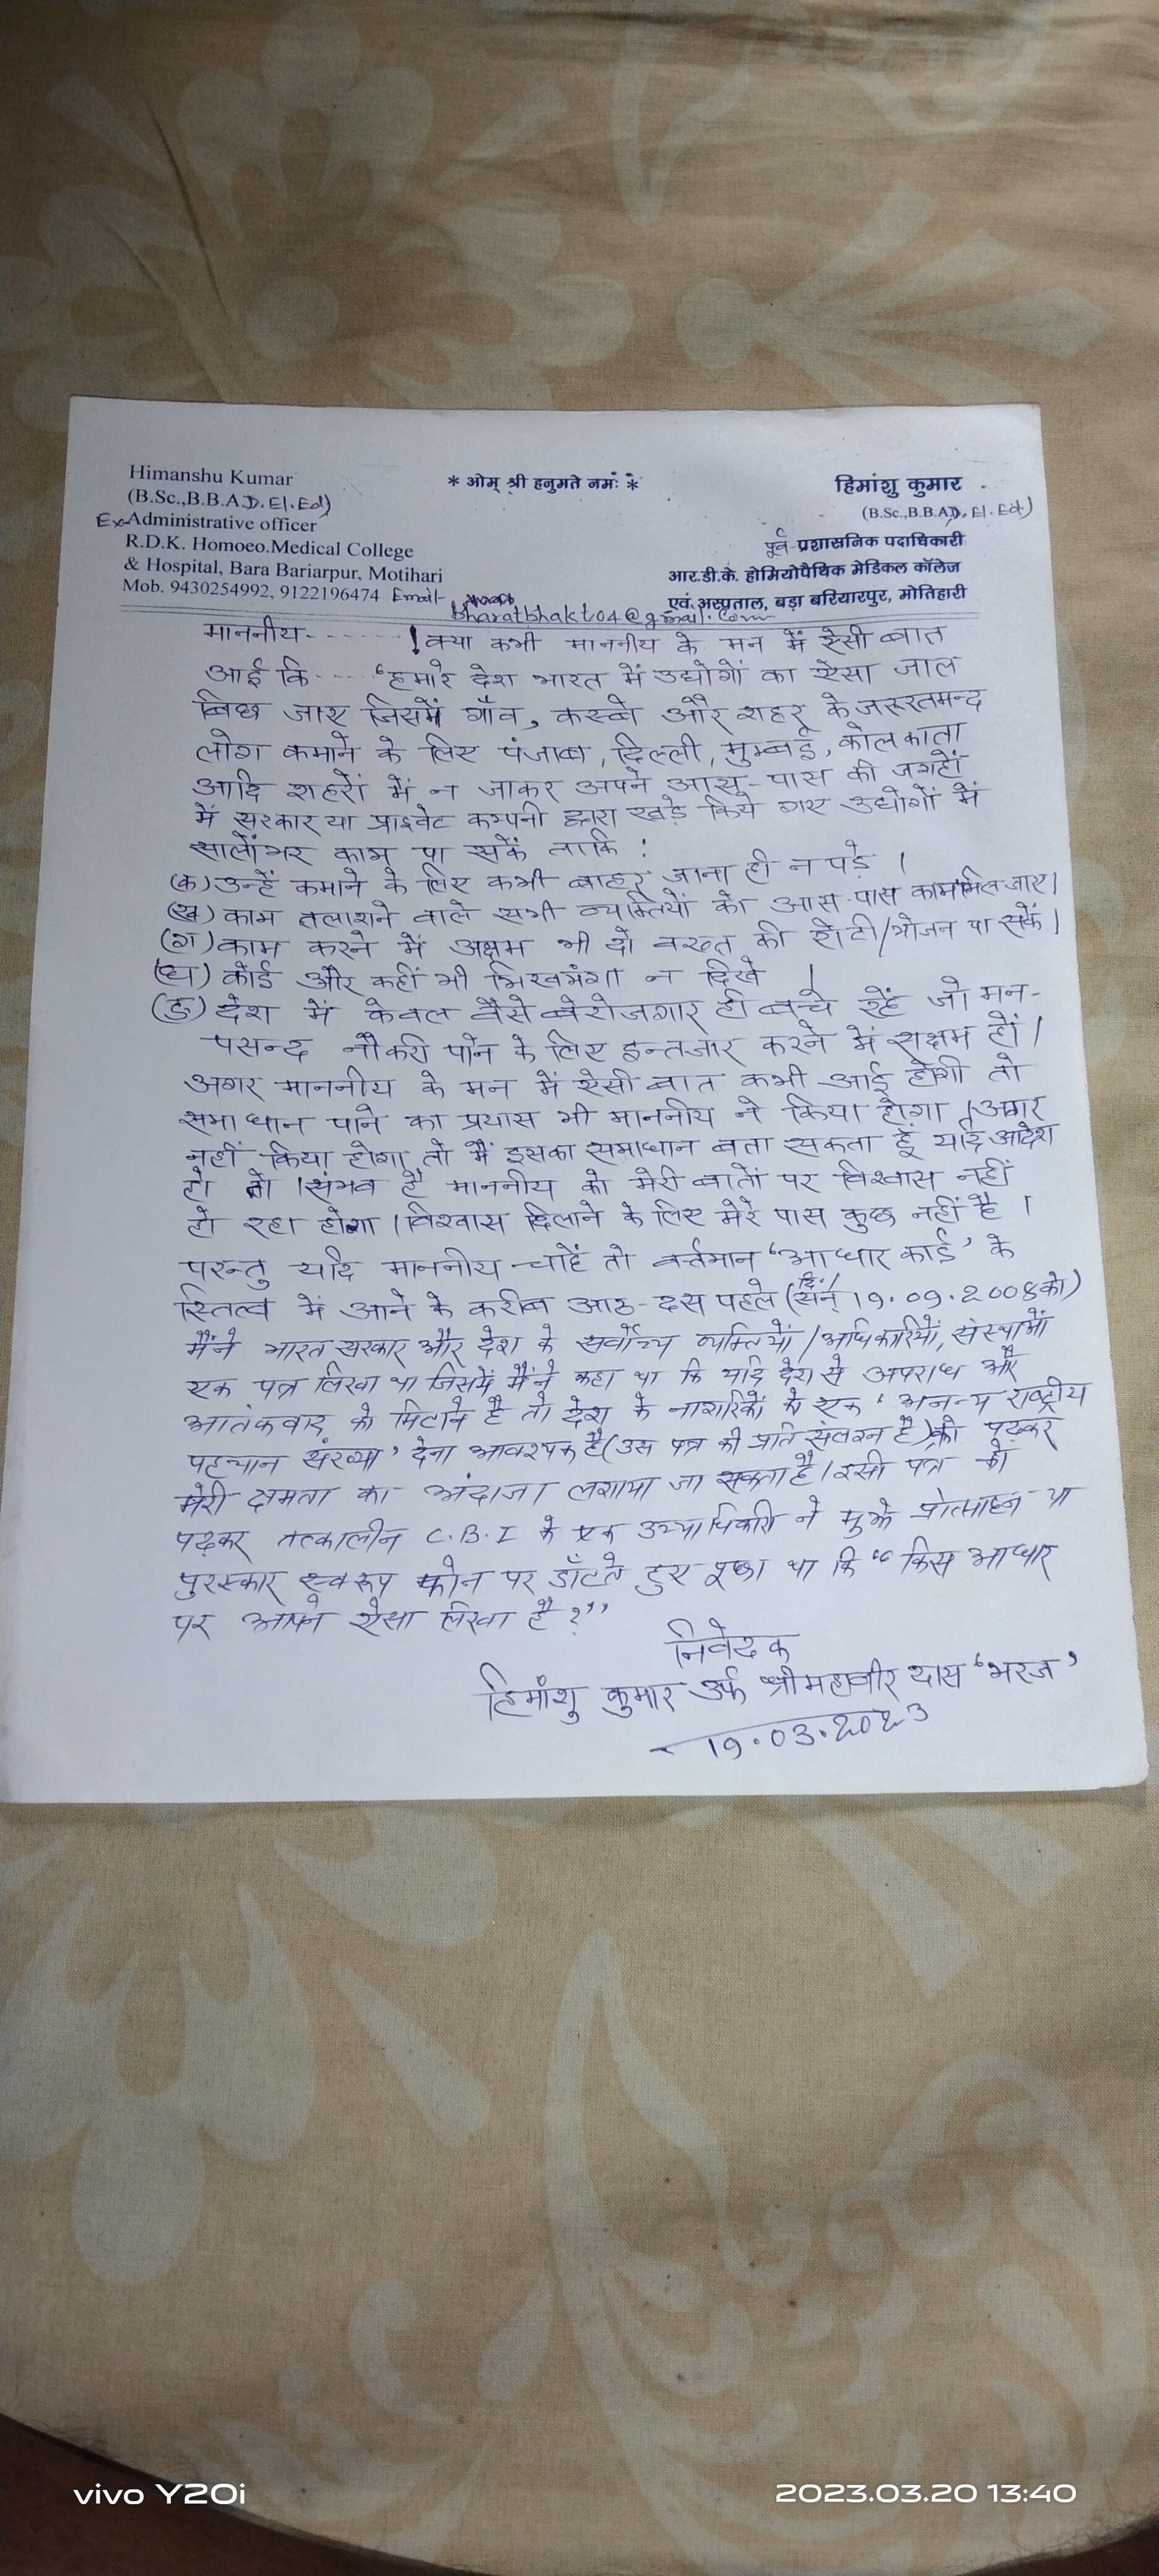 Himanshu Kumar
(B.Sc.,B.B.A,D.El.Ed)
Ex-Administrative officer
R.D.K. Homoeo.Medical College
& Hospital, Bara Bariarpur, Motihari
Mob. 9430254992, 9122196474 Email-
bharatbhakt04@gmail.com
* ओम् श्री हनुमते नमः *
हिमांशु कुमार
(B.Sc.,B.B.A, D.El.Ed)
पूर्व-प्रशासनिक पदाधिकारी
आर.डी.के. होमियोपैथिक मेडिकल कॉलेज
एवं अस्पताल, बड़ा बरियारपुर, मोतिहारी
माननीय-------! क्या कभी माननीय के मन में ऐसी बात
आई कि---- 'हमारे देश भारत में उद्योगों का ऐसा जाल
बिछ जाए जिसमें गाँव, कस्बे और शहर के जरूरतमन्द
लोग कमाने के लिए पंजाब, दिल्ली, मुम्बई, कोलकाता
आदि शहरों में न जाकर अपने आस-पास की जगहों
में सरकार या प्राइवेट कम्पनी द्वारा खड़े किये गए उद्योगों में
सालोंभर काम पा सकें ताकि :
(क) उन्हें कमाने के लिए कभी बाहर जाना ही न पड़े ।
(ख) काम तलाशने वाले सभी व्यक्तियों को आस-पास काम मिल जाए।
(ग) काम करने में अक्षम भी दो वख्त की रोटी/भोजन पा सकें।
(घ) कोई और कहीं भी भिखमंगा न दिखे ।
(ङ) देश में केवल वैसे बेरोजगार ही बचे रहें जो मन-
पसन्द नौकरी पाने के लिए इन्तजार करने में सक्षम हों।
अगर माननीय के मन में ऐसी बात कभी आई होगी तो
समाधान पाने का प्रयास भी माननीय ने किया होगा। अगर
नहीं किया होगा तो मैं इसका समाधान बता सकता हूँ यदि आदेश
हो तो। संभव है माननीय को मेरी बातों पर विश्वास नहीं
हो रहा होगा। विश्वास दिलाने के लिए मेरे पास कुछ नहीं है ।
परन्तु यदि माननीय चाहें तो वर्त्तमान 'आधार कार्ड' के
स्तित्व में आने के करीब आठ-दस पहले (दि./सन् 19.09.2008 को)
मैंने भारत सरकार और देश के सर्वोच्च व्यक्तियों/अधिकारियों, संस्थाओं
एक पत्र लिखा था जिसमें मैंने कहा था कि यदि देश से अपराध और
आतंकवाद को मिटाने है तो देश के नागरिकों को एक 'अनन्य राष्ट्रीय
पहचान संख्या' देना आवश्यक है (उस पत्र की प्रति संलग्न है) को पढ़कर
मेरी क्षमता का अंदाजा लगाया जा सकता है। इसी पत्र को
पढ़कर तत्कालीन C.B.I के एक उच्चाधिकारी ने मुझे प्रोत्साहन या
पुरस्कार स्वरूप फोन पर डाँटते हुए पूछा था कि "किस आधार
पर आपने ऐसा लिखा है ?"
निवेदक
हिमांशु कुमार उर्फ श्रीमहावीर दास 'भरज'
19.03.2023
vivo Y20i
2023.03.20 13:40